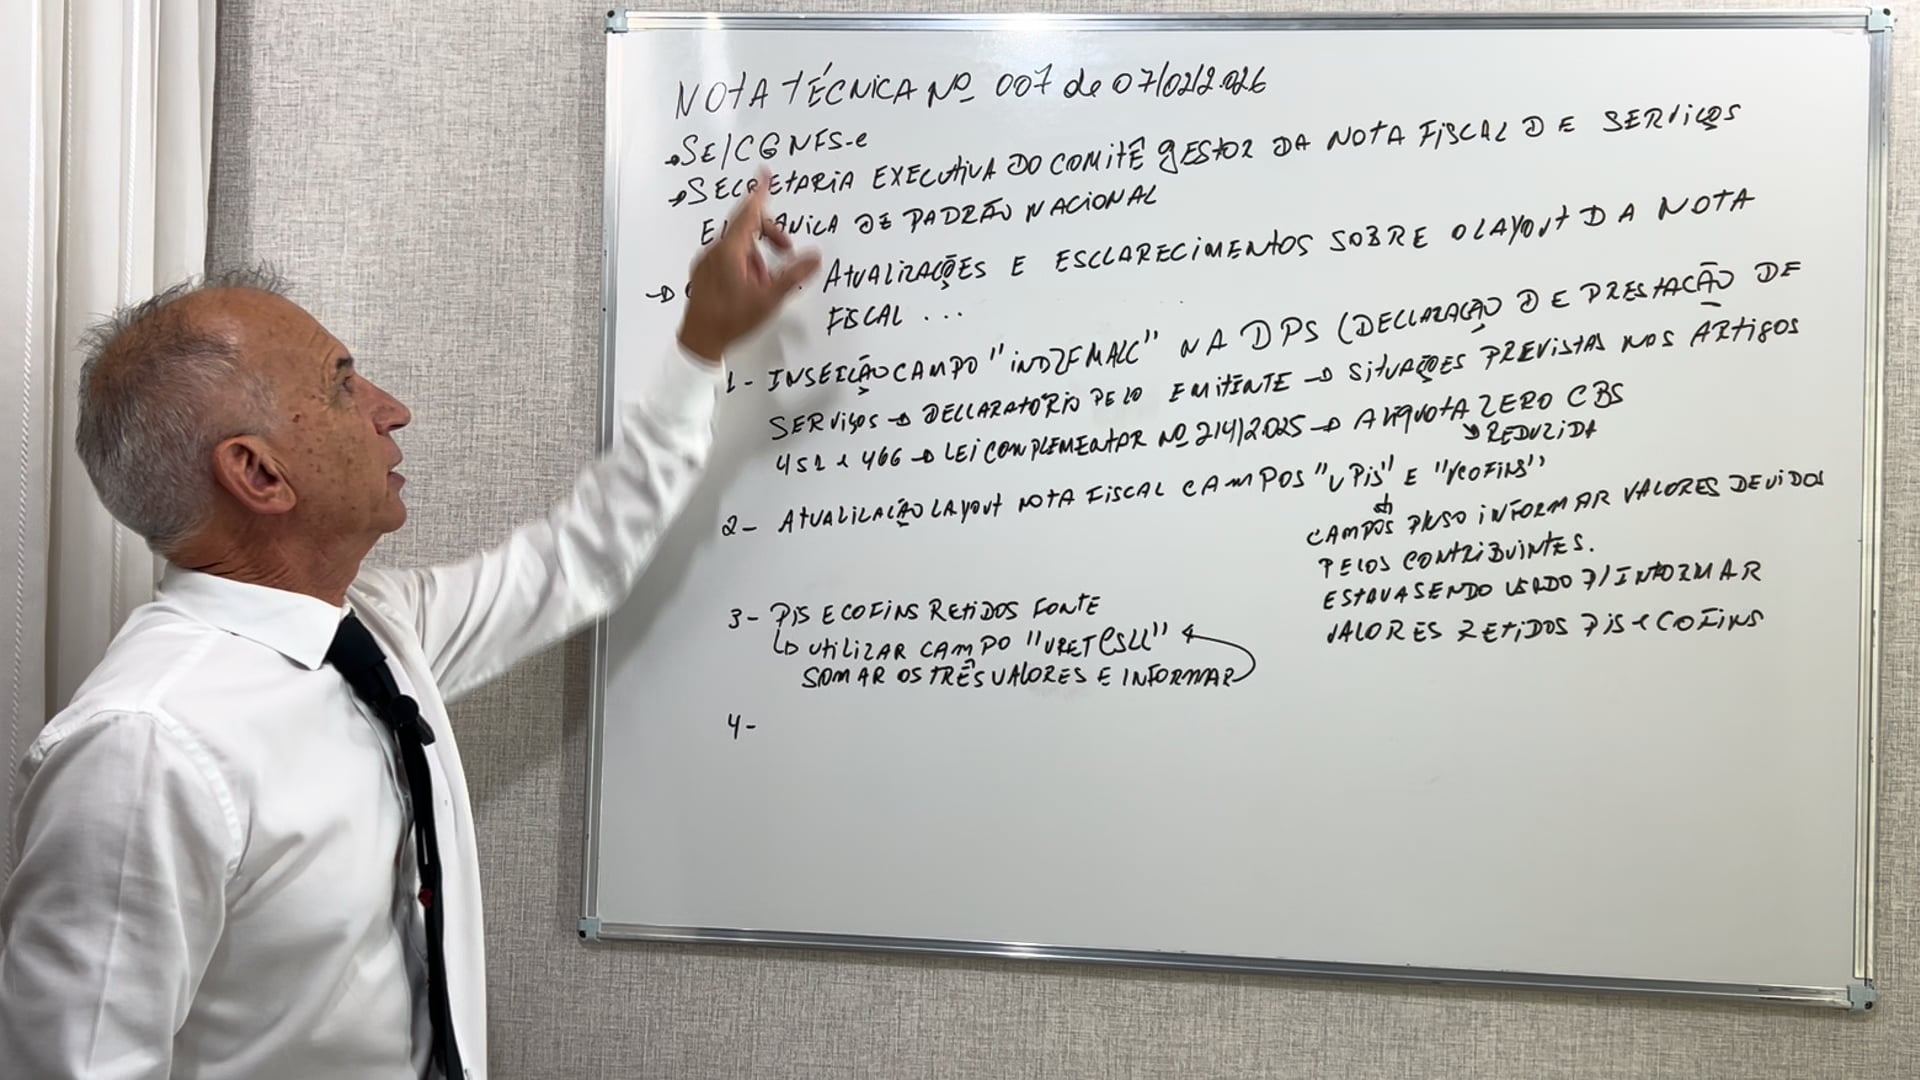 NOTA TÉCNICA Nº 007 de 07/02/2.026
→ SE/CGNFS-e
→ SECRETARIA EXECUTIVA DO COMITÊ GESTOR DA NOTA FISCAL DE SERVIÇOS
DE PADRÃO NACIONAL
→ ATUALIZAÇÕES E ESCLARECIMENTOS SOBRE O LAYOUT DA NOTA
FISCAL ...
1- INSERÇÃO CAMPO "INDZFMALC" NA DPS (DECLARAÇÃO DE PRESTAÇÃO DE
SERVIÇOS → DECLARATÓRIO PELO EMITENTE → SITUAÇÕES PREVISTAS NOS ARTIGOS
451 e 466 → LEI COMPLEMENTAR Nº 214/2.025 → ALÍQUOTA ZERO CBS
↘ REDUZIDA
2- ATUALIZAÇÃO LAYOUT NOTA FISCAL CAMPOS "vPIS" E "vCOFINS"
CAMPOS P/USO INFORMAR VALORES DEVIDOS
PELOS CONTRIBUINTES.
ESTAVA SENDO USADO P/ INFORMAR
VALORES RETIDOS PIS e COFINS
3- PIS E COFINS RETIDOS FONTE
↳ UTILIZAR CAMPO "VRETCSLL"
SOMAR OS TRÊS VALORES E INFORMAR
4-